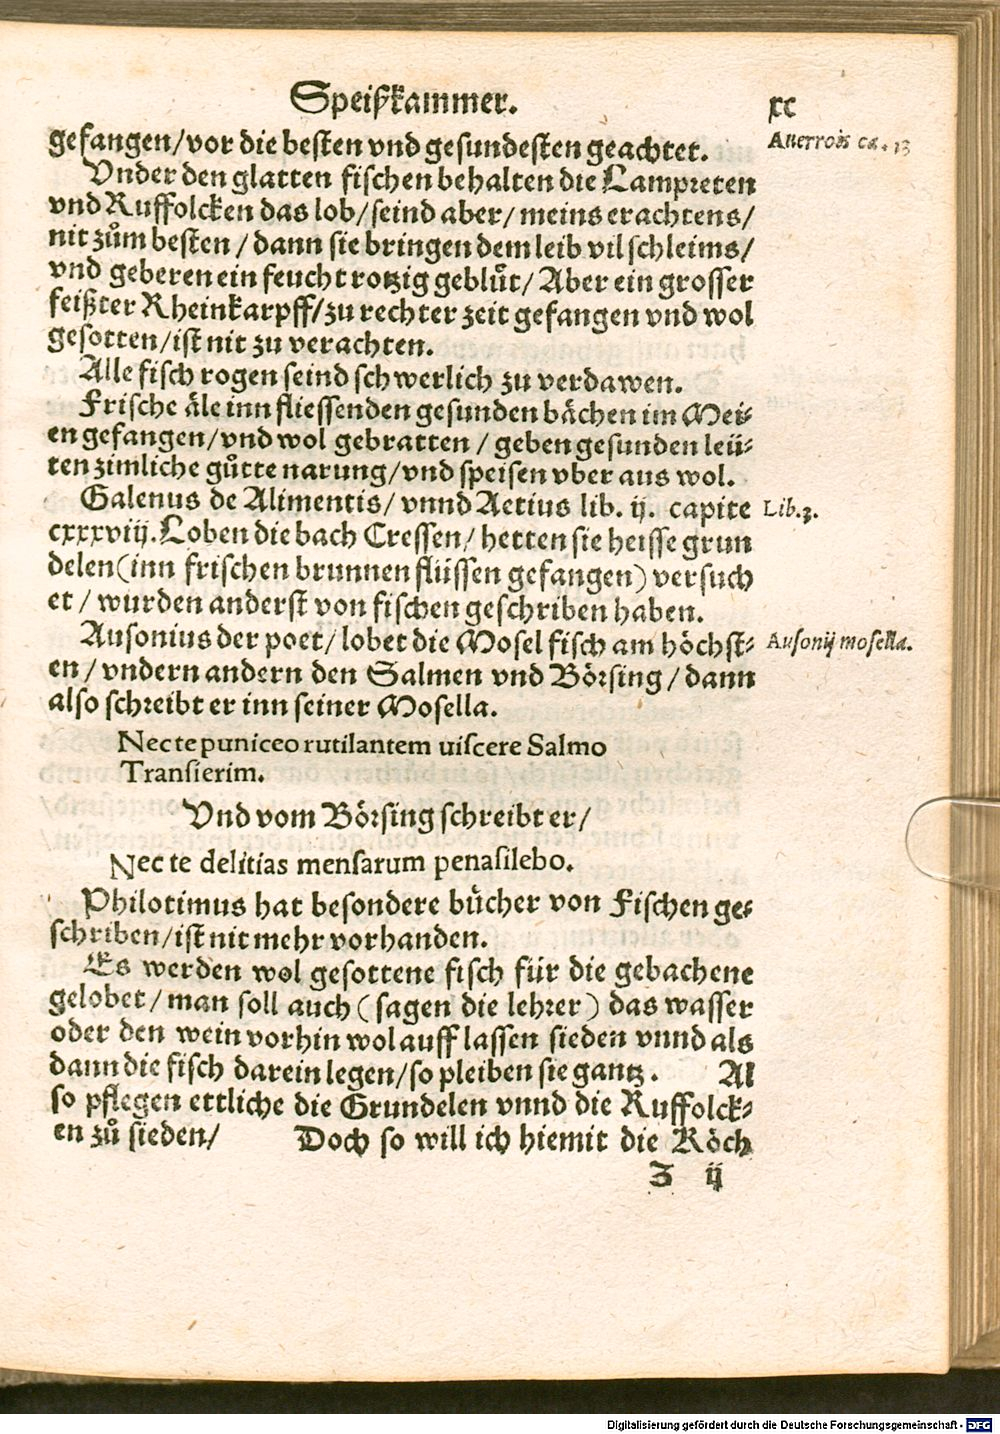 Speiſzkammer.
xc
gefangen/vor die beſten vnd geſundeſten geachtet.
Auerrois ca. 13
Vnder den glatten fiſchen behalten die Lampreten
vnd Ruffolcken das lob/ſeind aber/meins erachtens/
nit zům beſten/dann ſie bringen dem leib vil ſchleims/
vnd geberen ein feucht rotzig geblůt/Aber ein groſſer
feißter Rheinkarpff/zu rechter zeit gefangen vnd wol
geſotten/iſt nit zu verachten.
Alle fiſch rogen ſeind ſchwerlich zu verdawen.
Friſche åle inn flieſſenden geſunden båchen im Mei⸗
en gefangen/vnd wol gebratten/geben geſunden leü⸗
ten zimliche gůtte narung/vnd ſpeiſen vber aus wol.
Galenus de Alimentis/vnnd Aetius lib. ij. capite
Lib.3.
cxxxviij. Loben die bach Creſſen/hetten ſie heiſſe grun
delen(inn friſchen brunnen flüſſen gefangen)verſuch
et/wurden anderſt von fiſchen geſchriben haben.
Auſonius der poet/lobet die Moſel fiſch am höchſt⸗
Auſonij moſella.
en/vndern andern den Salmen vnd Börſing/dann
alſo ſchreibt er inn ſeiner Moſella.
Nec te puniceo rutilantem uiſcere Salmo
Tranſierim.
Vnd vom Börſing ſchreibt er/
Nec te delitias menſarum penaſilebo.
Philotimus hat beſondere bücher von Fiſchen ge⸗
ſchriben/iſt nit mehr vorhanden.
Es werden wol geſottene fiſch für die gebachene
gelobet/man ſoll auch(ſagen die lehrer)das waſſer
oder den wein vorhin wol auff laſſen ſieden vnnd als
dann die fiſch darein legen/ſo pleiben ſie gantz. Al
ſo pflegen ettliche die Grundelen vnnd die Ruffolck⸗
en zů ſieden/ Doch ſo will ich hiemit die Köch
Z ij
Digitalisierung gefördert durch die Deutsche Forschungsgemeinschaft - DFG